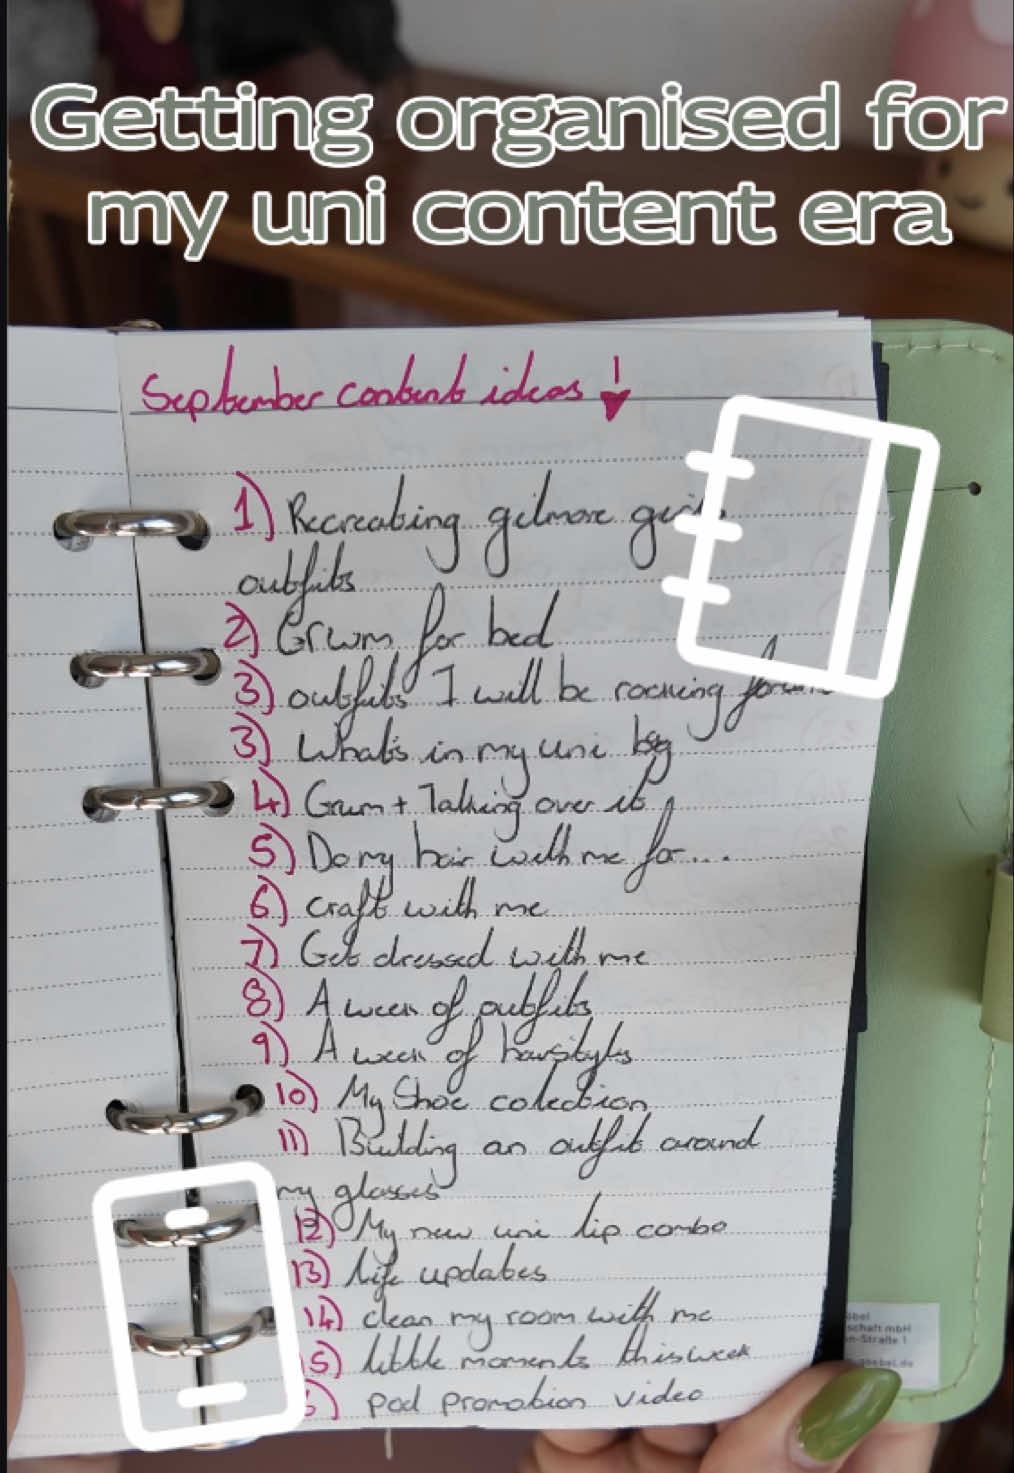 Getting organised for
my uni content era
September content ideas
1) Recreating gilmore girls
outfits
2) Grwm for bed
3) outfits I will be rocking for uni
3) What's in my uni bag
4) Grwm + Talking over it
5) Do my hair with me for...
6) craft with me
7) Get dressed with me
8) A week of outfits
9) A week of hairstyles
10) My Shoe colection
11) Building an outfit around
my glasses
12) My new uni lip combo
13) life updates
14) clean my room with me
15) little moments this week
) pod promotion video